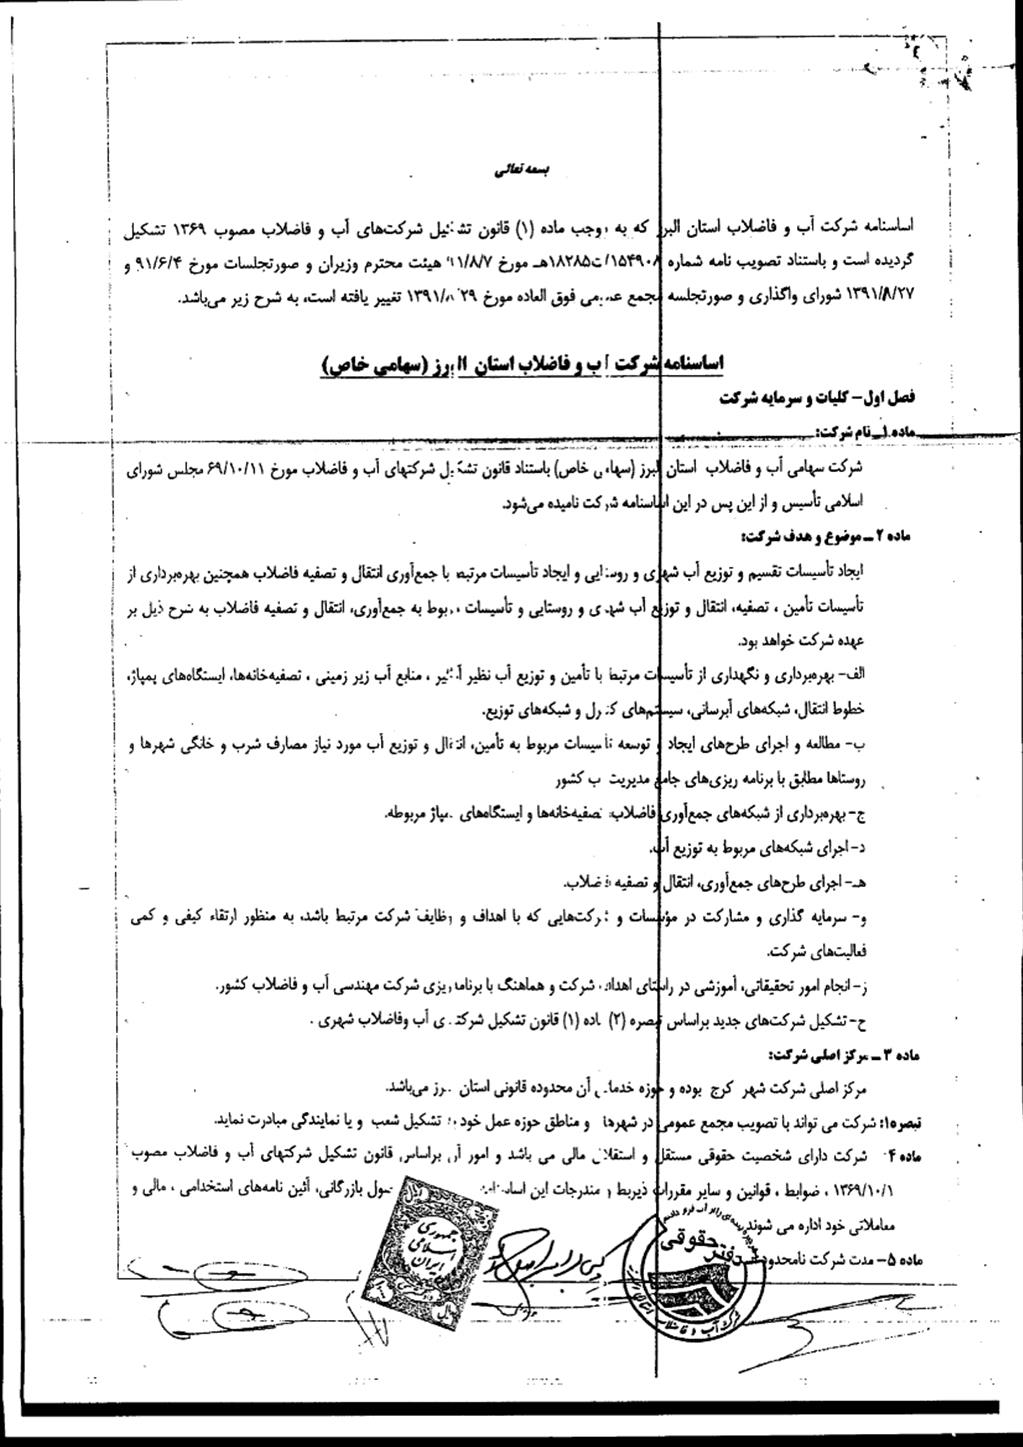 بسمه تعالی
اساسنامه شرکت آب و فاضلاب استان البرز که به موجب ماده (۱) قانون تشکیل شرکت‌های آب و فاضلاب مصوب ۱۳۶۹ تشکیل
گردیده است و باستناد تصویب نامه شماره ۱۵۴۹۰۸/ت۱۸۲۸۵هـ مورخ هیئت محترم وزیران و صورتجلسات مورخ ۹۱/۶/۴ و
۱۳۹۱/۸/۲۷ شورای واگذاری و صورتجلسه مجمع عمومی فوق العاده مورخ تغییر یافته است، به شرح زیر می‌باشد.
اساسنامه شرکت آب و فاضلاب استان البرز (سهامی خاص)
فصل اول- کلیات و سرمایه شرکت
ماده ۱_ نام شرکت:
شرکت سهامی آب و فاضلاب استان البرز (سهامی خاص) باستناد قانون تشکیل شرکتهای آب و فاضلاب مورخ ۶۹/۱۰/۱۱ مجلس شورای
اسلامی تأسیس و از این پس در این اساسنامه شرکت نامیده می‌شود.
ماده ۲ ـ موضوع و هدف شرکت:
ایجاد تأسیسات تقسیم و توزیع آب شهری و روستایی و ایجاد تأسیسات مرتبط با جمع‌آوری انتقال و تصفیه فاضلاب همچنین بهره‌برداری از
تأسیسات تأمین ، تصفیه، انتقال و توزیع آب شهری و روستایی و تأسیسات مربوط به جمع‌آوری، انتقال و تصفیه فاضلاب به شرح ذیل بر
عهده شرکت خواهد بود.
الف- بهره‌برداری و نگهداری از تأسیسات مرتبط با تأمین و توزیع آب نظیر آبگیر ، منابع آب زیر زمینی ، تصفیه‌خانه‌ها، ایستگاه‌های پمپاژ،
خطوط انتقال، شبکه‌های آبرسانی، سیستم‌های کنترل و شبکه‌های توزیع.
ب- مطالعه و اجرای طرح‌های ایجاد و توسعه تأسیسات مربوط به تأمین، انتقال و توزیع آب مورد نیاز مصارف شرب و خانگی شهرها و
روستاها مطابق با برنامه ریزی‌های جامع مدیریت آب کشور
ج- بهره‌برداری از شبکه‌های جمع‌آوری فاضلاب، تصفیه‌خانه‌ها و ایستگاه‌های پمپاژ مربوطه.
د- اجرای شبکه‌های مربوط به توزیع آب.
هـ- اجرای طرح‌های جمع‌آوری، انتقال و تصفیه فاضلاب.
و- سرمایه گذاری و مشارکت در مؤسسات و شرکت‌هایی که با اهداف و وظایف شرکت مرتبط باشد، به منظور ارتقاء کیفی و کمی
فعالیت‌های شرکت.
ز- انجام امور تحقیقاتی، آموزشی در راستای اهداف شرکت و هماهنگ با برنامه‌ریزی شرکت مهندسی آب و فاضلاب کشور.
ح- تشکیل شرکت‌های جدید براساس تبصره (۲) ماده (۱) قانون تشکیل شرکتهای آب وفاضلاب شهری .
ماده ۳ ـ مرکز اصلی شرکت:
مرکز اصلی شرکت شهر کرج بوده و حوزه خدماتی آن محدوده قانونی استان البرز می‌باشد.
تبصره۱: شرکت می تواند با تصویب مجمع عمومی در شهرها و مناطق حوزه عمل خود به تشکیل شعب و یا نمایندگی مبادرت نماید.
ماده ۴- شرکت دارای شخصیت حقوقی مستقل و استقلال مالی می باشد و امور آن براساس قانون تشکیل شرکتهای آب و فاضلاب مصوب
۱۳۶۹/۱۰/۱ ، ضوابط ، قوانین و سایر مقررات ذیربط و مندرجات این اساسنامه اصول بازرگانی، آئین نامه‌های استخدامی ، مالی و
معاملاتی خود اداره می شوند
ماده ۵- مدت شرکت نامحدود است
دفتر حقوقی
شرکت آب و فاضلاب
جمهوری
اسلامی
ایران
ریال